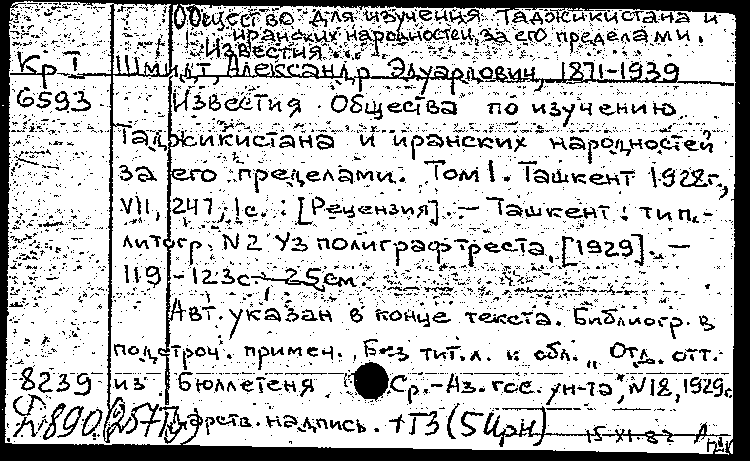 Общество для изучения Таджикистана и
иранских народностей за его пределами.
Известия ...
Кр I Шмидт, Александр Эдуардович, 1871-1939
6593 Известия Общества по изучению
Таджикистана и иранских народностей
за его пределами. Том I. Ташкент 1928г.,
VII, 247, 1с. : [Рецензия]. - Ташкент : тип.-
литогр. N2 Узполиграфтреста, [1929]. -
119 - 123с. 25см.
Авт. указан в конце текста. Библиогр. в
подстроч. примеч. Без тит.л. и обл. „Отд. отт.
8239 из бюллетеня Ср.-Аз.гос. ун-та", N18, 1929г.
Д890(257Тд) Дарств. надпись. +Т3(5Ирн) 15-XI-82